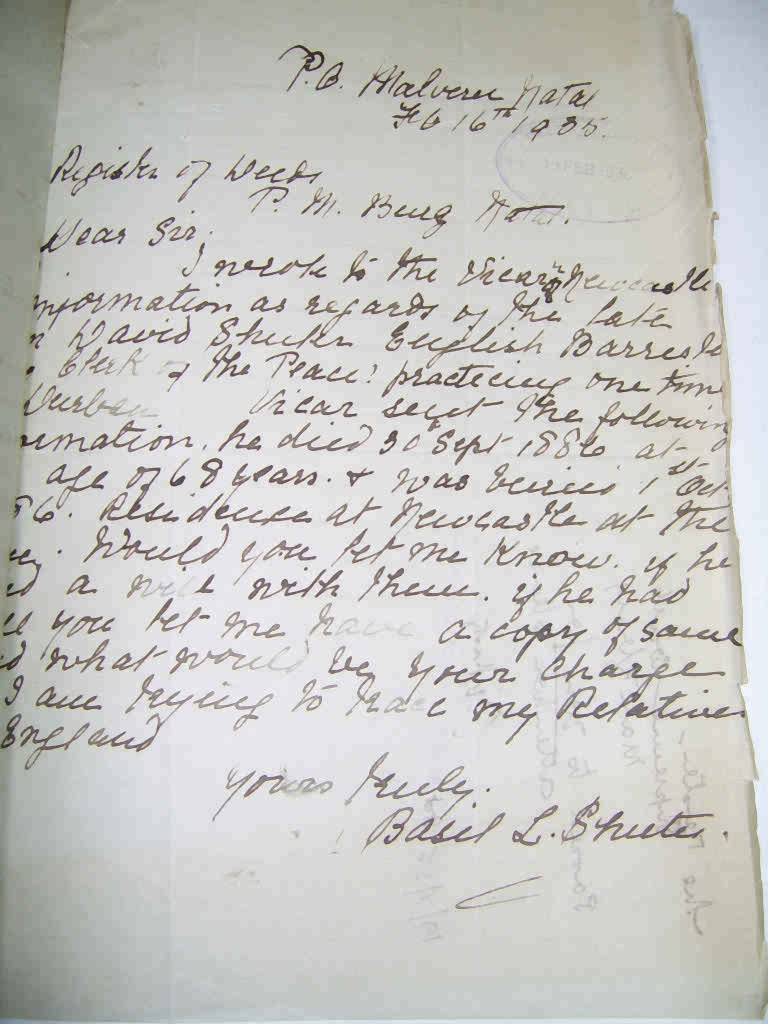 P.O. Malvern Natal
Feb 16th 1935.
Register of Deeds
P. M. Burg Natal.
Dear Sir;
I wrote to the Vicar Newcastle
information as regards of the late
David Shuter English Barrester
Clerk of the Peace: practicing one time
Durban Vicar sent the following
rmation. he died 30th Sept 1886 at
age of 68 years. & was buried 1st Oct
86. Residence at Newcastle at the
Would you let me know. if he
a will with them. if he had
you let me have a copy of same
what would be your charge
I am trying to trace my Relatives
England
Yours truly.
Basil L. Shuter.